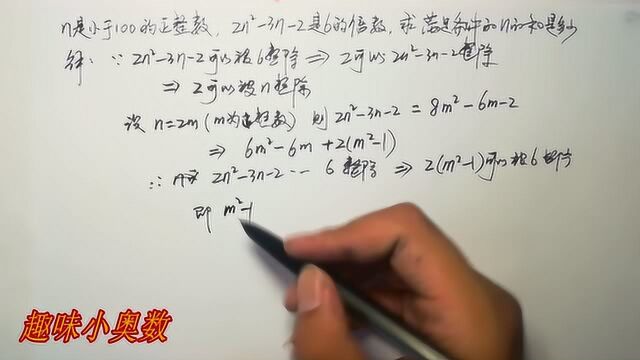 n是小于100的正整数，2n²-3n-2是6的倍数，求满足条件的n的和是多少
解：∵ 2n²-3n-2可以被6整除 ⇒ 2可以 2n²-3n-2整除
⇒ 2可以被n整除
设 n=2m (m为正整数) 则 2n²-3n-2 = 8m²-6m-2
⇒ 6m²-6m+2(m²-1)
∵ 2n²-3n-2 … 6整除 ⇒ 2(m²-1)可以被6整除
即 m²-1
趣味小奥数